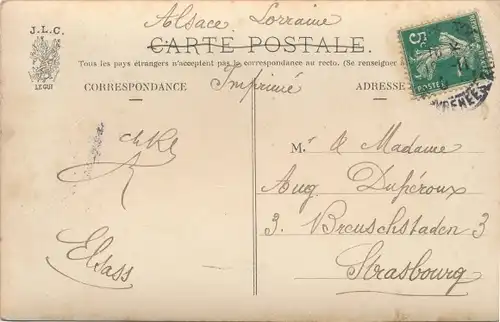 Alsace Lorraine
J.L.C.
LE GUI
CARTE POSTALE
Tous les pays étrangers n'acceptent pas la correspondance au recto. (Se renseigner à
Imprimé
CORRESPONDANCE
ADRESSE
5
POSTES
M. & Madame
Aug. Dupéroux
3. Breuschstaden 3
Strasbourg
Elsass